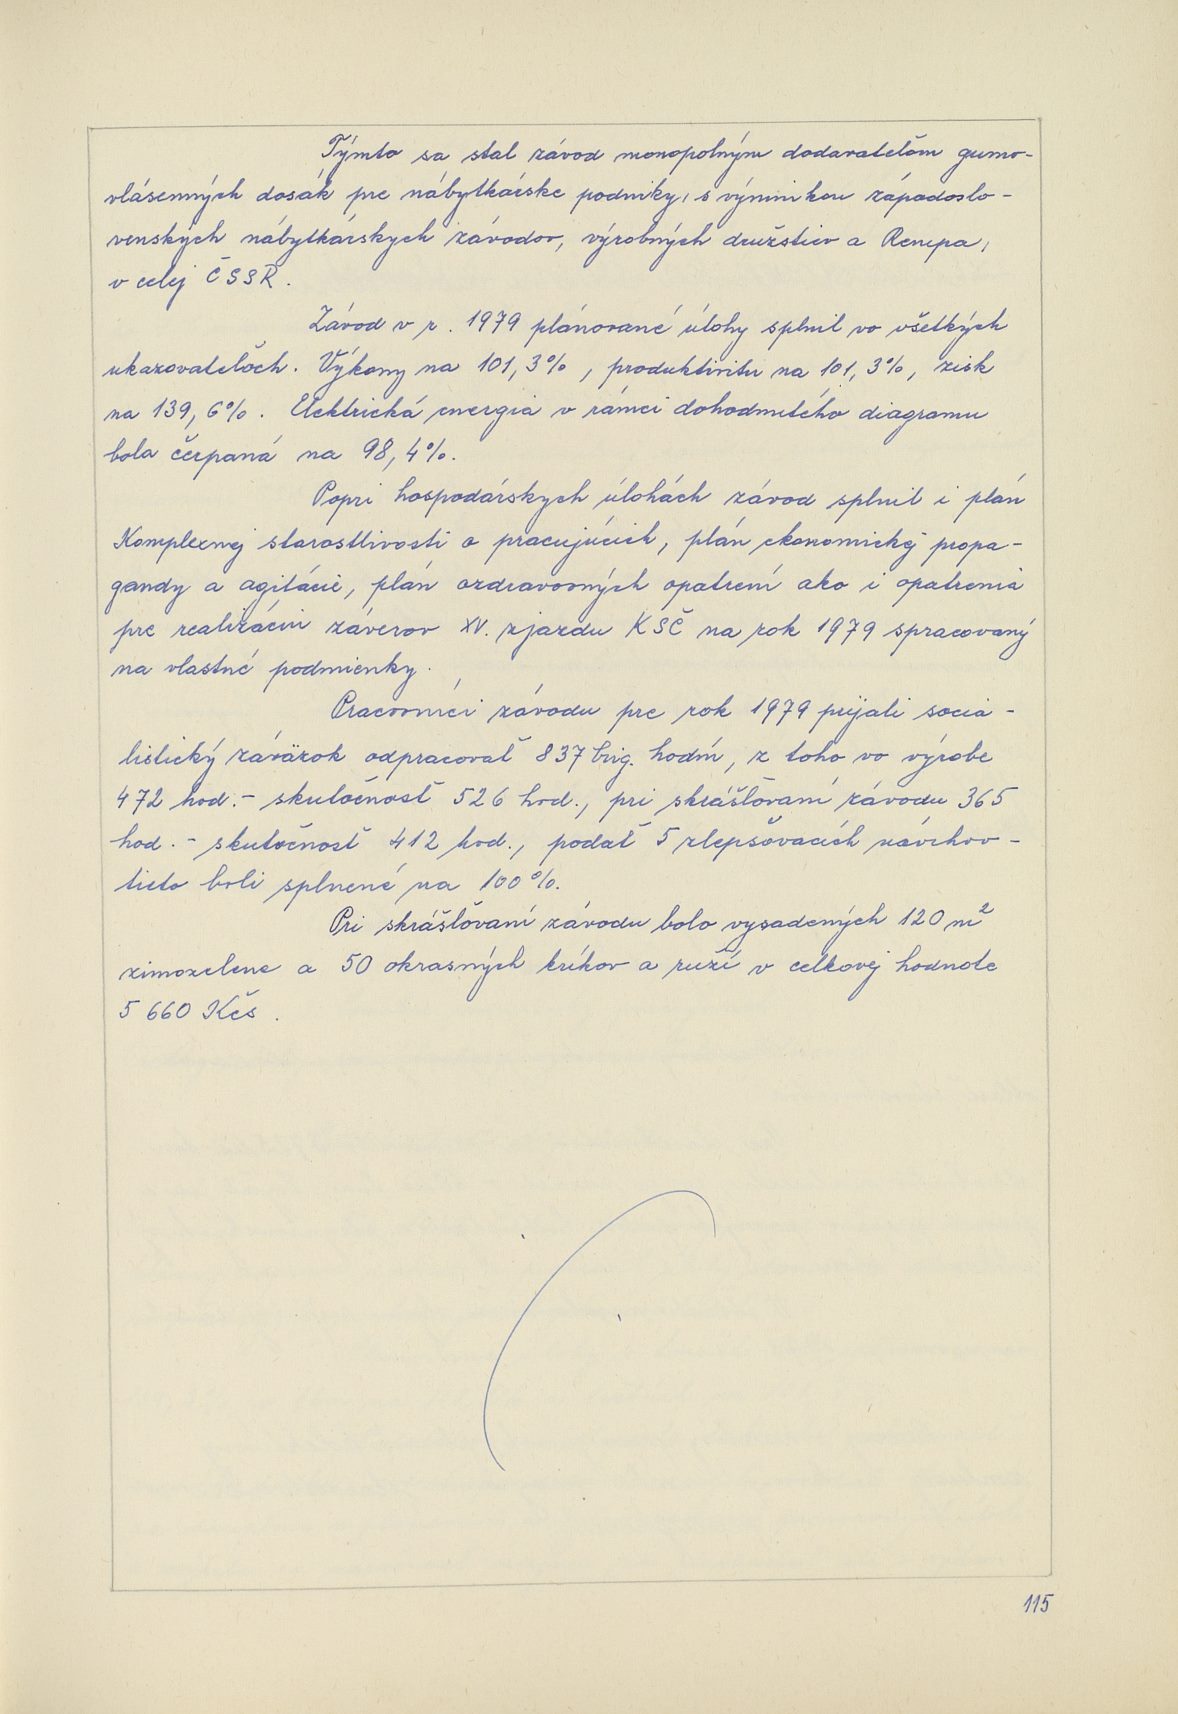 Týmto sa stal závod monopolným dodavateľom gumo-
vlásenných dosák pre nábytkárske podniky, s výnimkou západoslo-
venských nábytkárskych závodov, výrobných družstiev a Renepa,
v celej ČSSR.
Závod v r. 1979 plánované úlohy splnil vo všetkých
ukazovateľoch. Výkony na 101,3%, produktivitu na 101,3%, zisk
na 139,6%. Elektrická energia v rámci dohodnutého diagramu
bola čerpaná na 98,4%.
Popri hospodárskych úlohách závod splnil i plán
Komplexnej starostlivosti o pracujúcich, plán ekonomickej propa-
gandy a agitácie, plán ozdravovných opatrení ako i opatrenia
pre realizáciu záverov XV. zjazdu KSČ na rok 1979 spracovaný
na vlastné podmienky.
Pracovníci závodu pre rok 1979 prijali socia-
listický záväzok odpracovať 837 brig. hodín, z toho vo výrobe
472 hod. - skutočnosť 526 hod., pri skrášľovaní závodu 365
hod. - skutočnosť 412 hod., podať 5 zlepšovacích návrhov -
tieto boli splnené na 100%.
Pri skrášľovaní závodu bolo vysadených 120 m²
zimozelene a 50 okrasných kríkov a ruží v celkovej hodnote
5 660 Kčs.
115